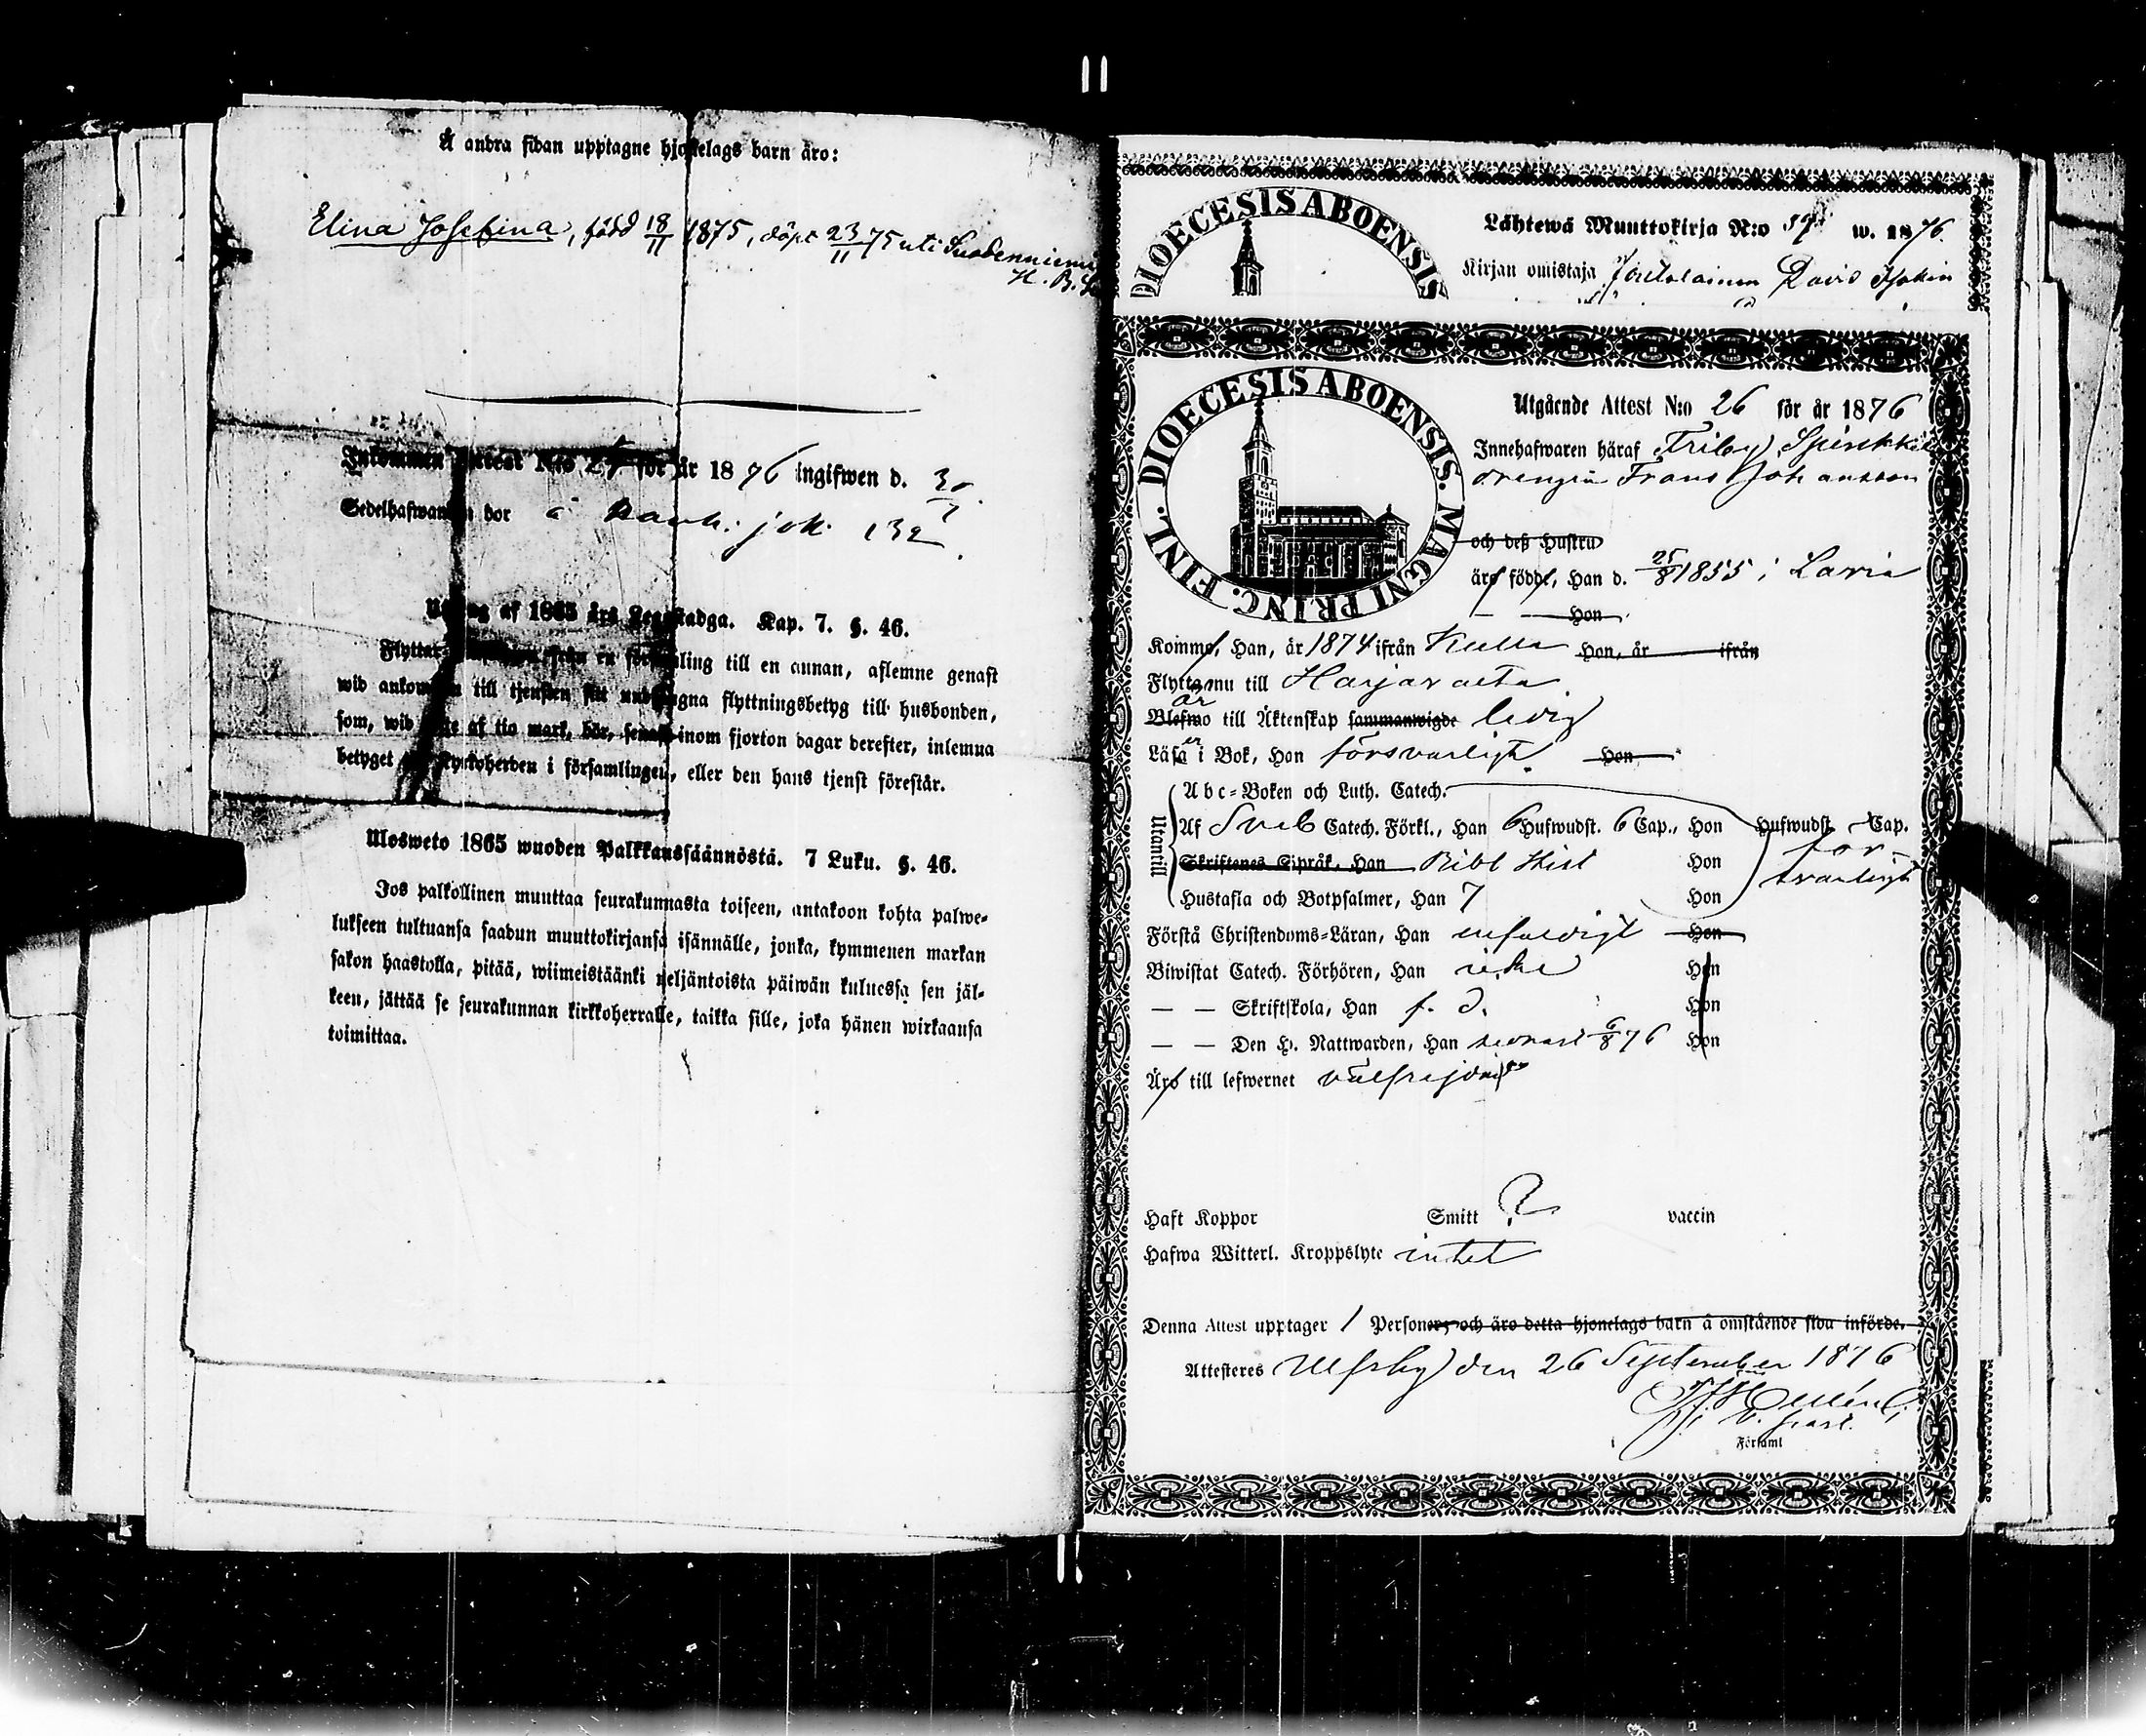 Å andra sidan upptagne hjonelags barn äro:
Elina Josefina, född 18/11 1875, döpt 23/11 75 uti Suodenniemi
H. B.
Inkommen Attest N:o för år 1876 ingifwen d. 30/
Sedelhafwaren bor å jok. 132.
Utdrag af 1865 års Legostadga. Kap. 7. §. 46.
Flyttar från en församling till en annan, aflemne genast
wid ankomsten till tjensten sitt undfångna flyttningsbetyg till husbonden,
som, wid wite af tio mark, bör, senast inom fjorton dagar derefter, inlemna
betyget Kyrkoherden i församlingen, eller den hans tjenst förestår.
Ulosweto 1865 wuoden Palkkaussäännöstä. 7 Luku. §. 46.
Jos palkollinen muuttaa seurakunnasta toiseen, antakoon kohta palwe-
lukseen tultuansa saadun muuttokirjansa isännälle, jonka, kymmenen markan
sakon haastolla, pitää, wiimeistäänki neljäntoista päiwän kuluessa sen jäl-
keen, jättää se seurakunnan kirkkoherralle, taikka sille, joka hänen wirkaansa
toimittaa.
DIOECESIS ABOENSIS
Lähtewä Muuttokirja N:o w. 1876.
Kirjan omistaja David
DIOECESIS ABOENSIS. MAGNI PRINC. FINL.
Utgående Attest N:o 26 för år 1876
Innehafwaren häraf Friby
drengen Frans Johansson
och deß Hustru
äro födde, Han d. 25/8 1855 i Lavia
— — Hon
Komme, Han, år 1874 ifrån Kulla Hon, år ifrån
Flytta nu till Harjavalta
är
Blefwo till Äktenskap sammanwigde ledig
Läsa er i Bok, Han försvarligt Hon
Utantill
Abc-Boken och Luth. Catech.
Af Sveb Catech. Förkl., Han 6 Hufwudst. 6 Cap., Hon Hufwudst. Cap.
för-
Skriftenes Språk, Han Bibl Hist Hon
svarligt
Hustafla och Botpsalmer, Han 7 Hon
Förstå Christendoms-Läran, Han enfaldigt Hon
Biwistat Catech. Förhören, Han icke Hon
— — Skriftskola, Han f. d. Hon
— — Den H. Nattwarden, Han senast 6/8 76 Hon
Äro till lefwernet välfrejdad
Haft Koppor Smitt ? vaccin
Hafwa Witterl. Kroppslyte intet
Denna Attest upptager 1 Personer, och äro detta hjonelags barn å omstående sida införde.
Attesteres Ulfsby den 26 September 1876
v. past.
Församl